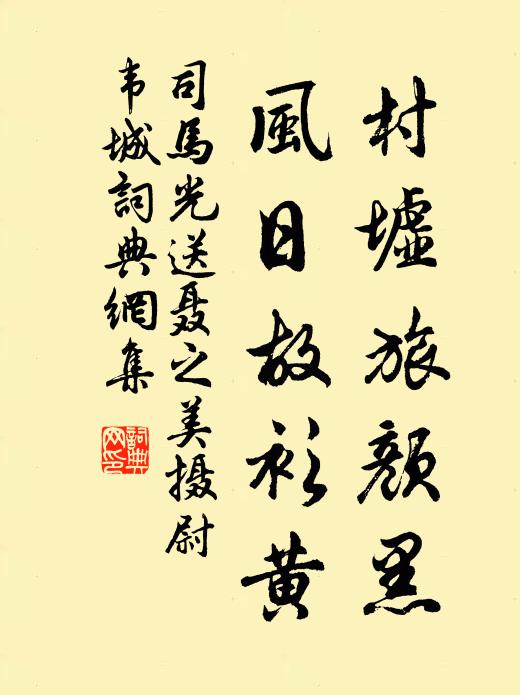 村墟旅颜黑
風日故衫黄
司馬光送聂之美摄尉
韦城詞典網集
詞典网印